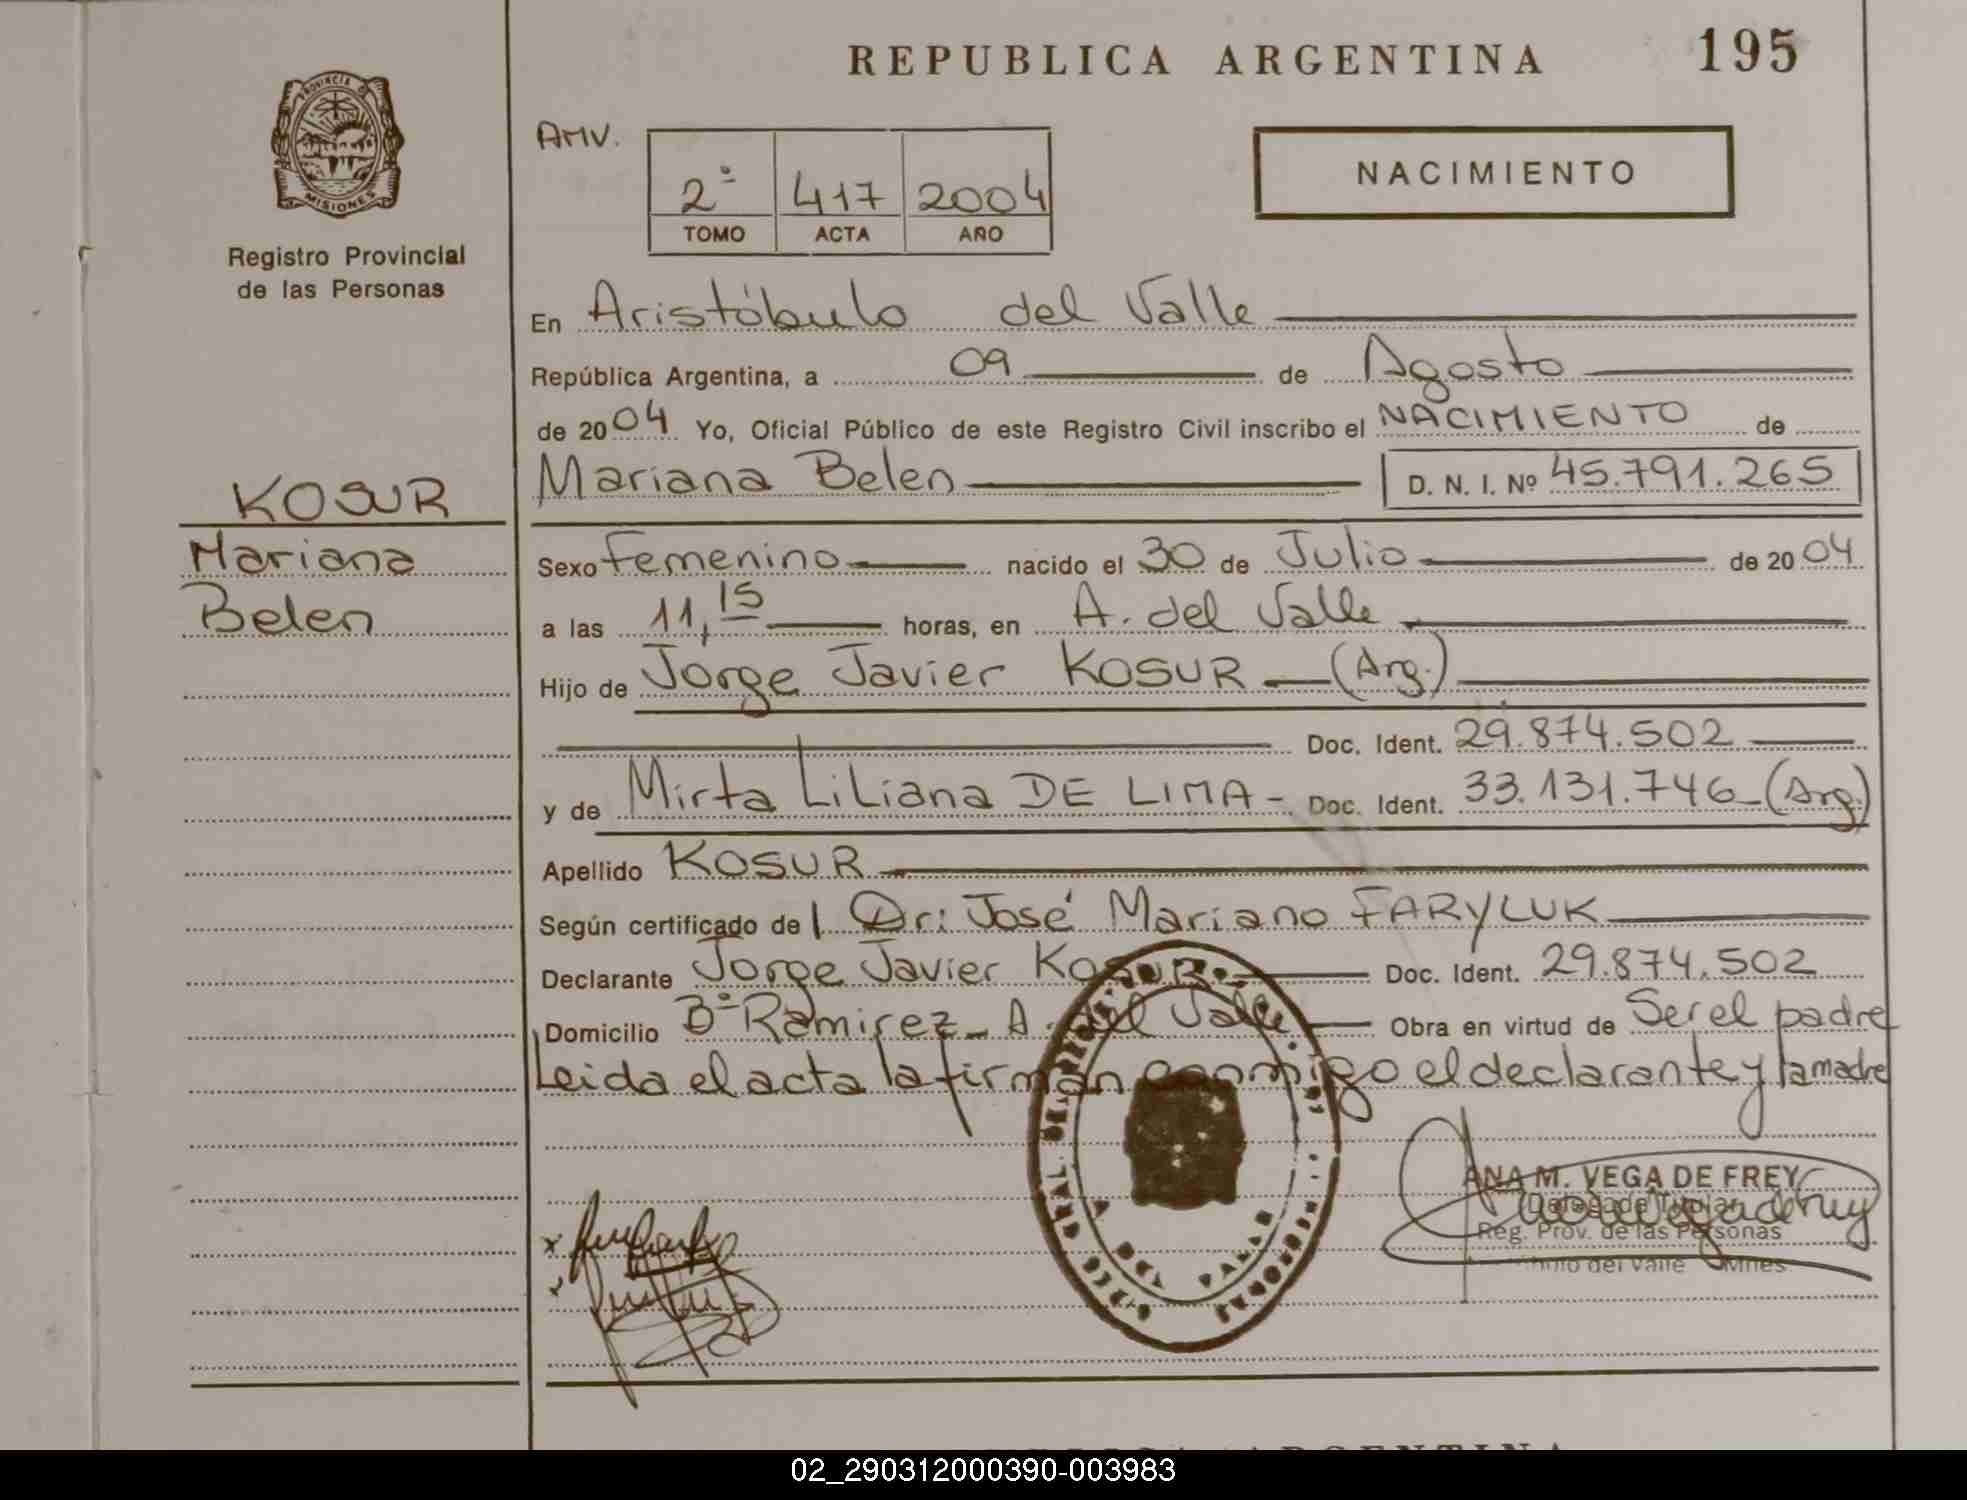 REPUBLICA ARGENTINA 195
PROVINCIA DE
MISIONES
Registro Provincial
de las Personas
AMV.
2º 417 2004
TOMO ACTA AÑO
NACIMIENTO
En Aristóbulo del Valle
República Argentina, a 09 de Agosto
de 2004 Yo, Oficial Público de este Registro Civil inscribo el NACIMIENTO de
Mariana Belen D. N. I. Nº 45.791.265
KOSUR
Mariana
Belen
Sexo Femenino nacido el 30 de Julio de 2004
a las 11,15 horas, en A. del Valle
Hijo de Jorge Javier KOSUR (Arg.)
Doc. Ident. 29.874.502
y de Mirta Liliana DE LIMA - Doc. Ident. 33.131.746 (Arg.)
Apellido KOSUR
Según certificado de l Dr: José Mariano FARYLUK
Declarante Jorge Javier KOSUR Doc. Ident. 29.874.502
Domicilio Bº Ramirez - A. del Valle Obra en virtud de Ser el padre
Leida el acta la firman conmigo el declarante y la madre
ANA M. VEGA DE FREY
Delegada Titular
Reg. Prov. de las Personas
del Valle Mnes
A DEL VALLE
02_290312000390-003983